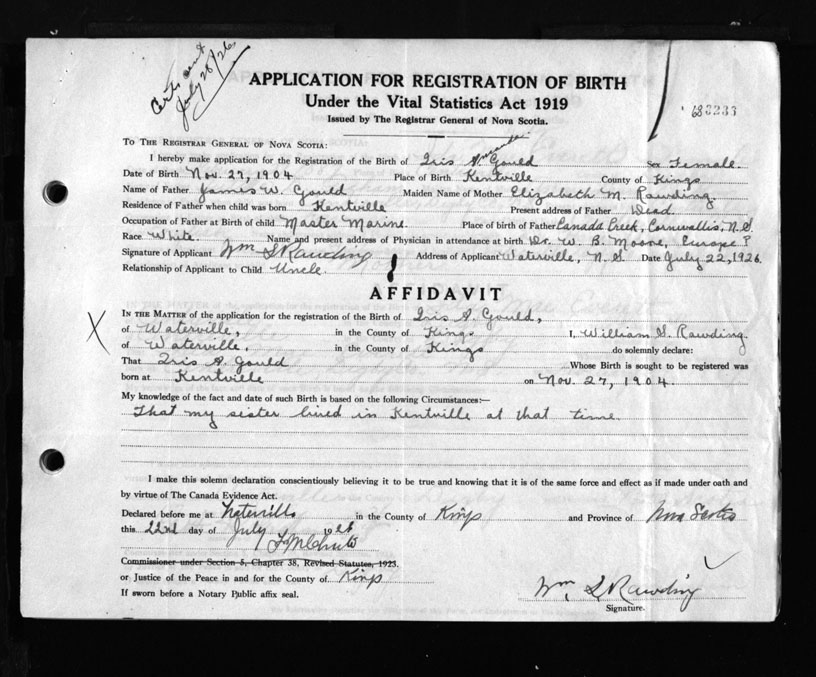 Certs sent
July 28/26
APPLICATION FOR REGISTRATION OF BIRTH
Under the Vital Statistics Act 1919
Issued by The Registrar General of Nova Scotia.
TO THE REGISTRAR GENERAL OF NOVA SCOTIA:
I hereby make application for the Registration of the Birth of Iris A. Gould Sex Female.
Date of Birth Nov. 27, 1904 Place of Birth Kentville County of Kings
Name of Father James W. Gould Maiden Name of Mother Elizabeth M. Rawding.
Residence of Father when child was born Kentville Present address of Father Dead.
Occupation of Father at Birth of child Master Marine. Place of birth of Father Canada Creek, Cornwallis, N.S.
Race White. Name and present address of Physician in attendance at birth Dr. W. B. Moore, Europe?
Signature of Applicant Wm S Rawding Address of Applicant Waterville, N.S. Date July 22, 1926.
Relationship of Applicant to Child Uncle.
AFFIDAVIT
IN THE MATTER of the application for the registration of the Birth of Iris A. Gould,
X of Waterville, in the County of Kings I, William S. Rawding.
of Waterville, in the County of Kings do solemnly declare:
That Iris A. Gould Whose Birth is sought to be registered was
born at Kentville on Nov. 27, 1904.
My knowledge of the fact and date of such Birth is based on the following Circumstances:—
That my sister lived in Kentville at that time.
I make this solemn declaration conscientiously believing it to be true and knowing that it is of the same force and effect as if made under oath and
by virtue of The Canada Evidence Act.
Declared before me at Waterville in the County of Kings and Province of Nova Scotia
this 22nd day of July 1926
Commissioner under Section 5, Chapter 38, Revised Statutes, 1923.
or Justice of the Peace in and for the County of Kings
If sworn before a Notary Public affix seal.
Wm. S Rawding
Signature.